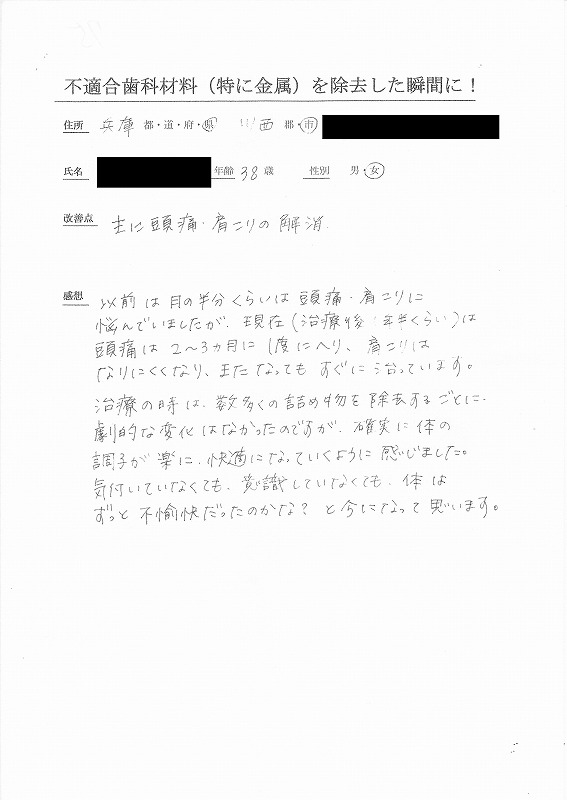 不適合歯科材料（特に金属）を除去した瞬間に！
住所 兵庫 都・道・府・県 川西 郡・市
氏名 年齢 38 歳 性別 男・女
改善点 主に頭痛・肩こりの解消.
感想 以前は月の半分くらいは頭痛・肩こりに
悩んでいましたが、現在(治療後1年半くらい)は
頭痛は2〜3ヵ月に1度にへり、肩こりは
なりにくくなり、またなってもすぐに治っています。
治療の時は、数多くの詰め物を除去するごとに、
劇的な変化はなかったのですが、確実に体の
調子が楽に、快適になっていくように感じました。
気付いていなくても、意識していなくても、体は
ずっと不愉快だったのかな？と今になって思います。